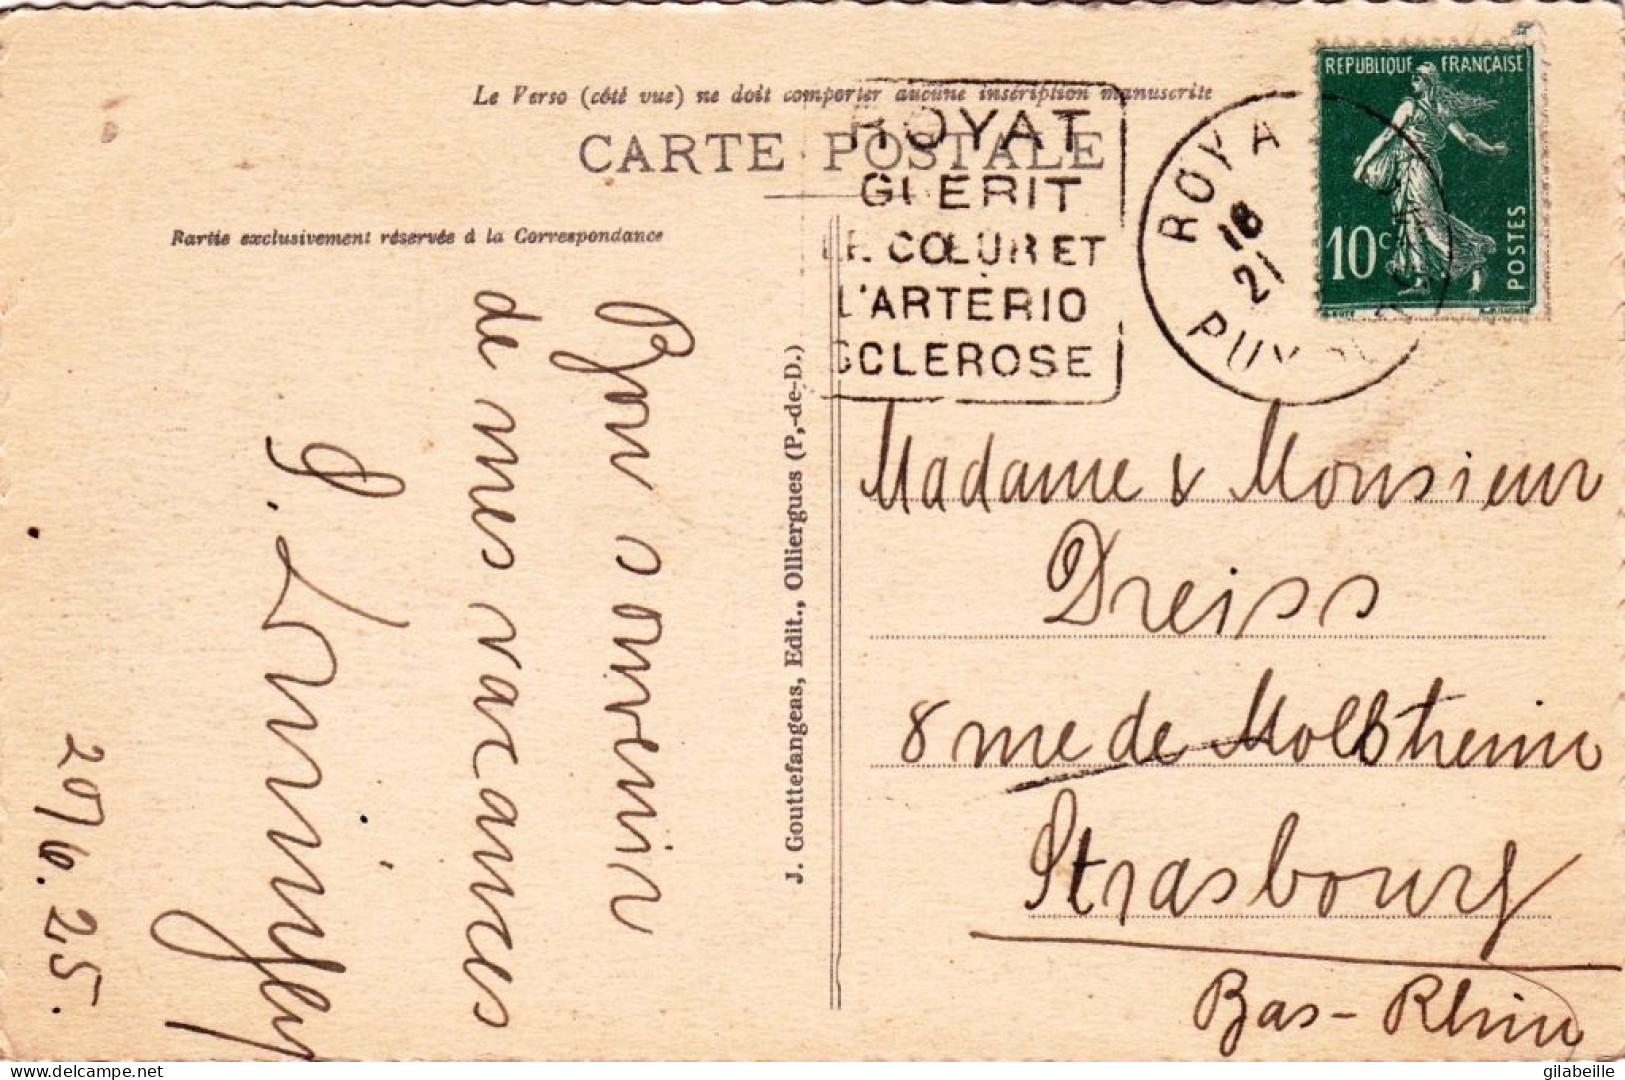 Le Verso (côté vue) ne doit comporter aucune inscription manuscrite
CARTE POSTALE
Partie exclusivement réservée à la Correspondance
ROYAT
GUERIT
LE CŒUR ET
L'ARTERIO
SCLEROSE
ROYA
18
21
PUY
REPUBLIQUE FRANÇAISE
10c
POSTES
Bon souvenir
de mes vacances
20/6.25.
J. Gouttefangeas, Edit., Olliergues (P.-de-D.)
Madame & Monsieur
Dreiss
8 rue de Molsheim
Strasbourg
Bas-Rhin
gilabeille